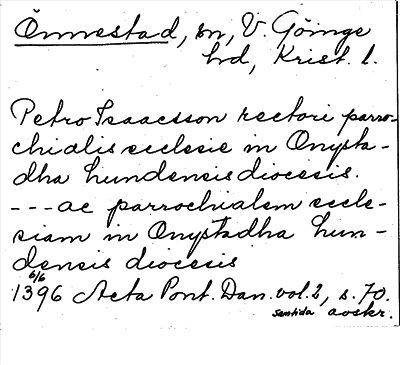 Önnestad, sn, V. Göinge
hd, Krist. l.
Petro Isaacsson rectori parro-
chialis ecclesie in Onysta-
dha lundensis diocesis.
--- ac parrochialem eccle-
siam in Onystadha lun-
densis diocesis
6/6
1396 Acta Pont. Dan. vol. 2, s. 70.
samtida avskr.